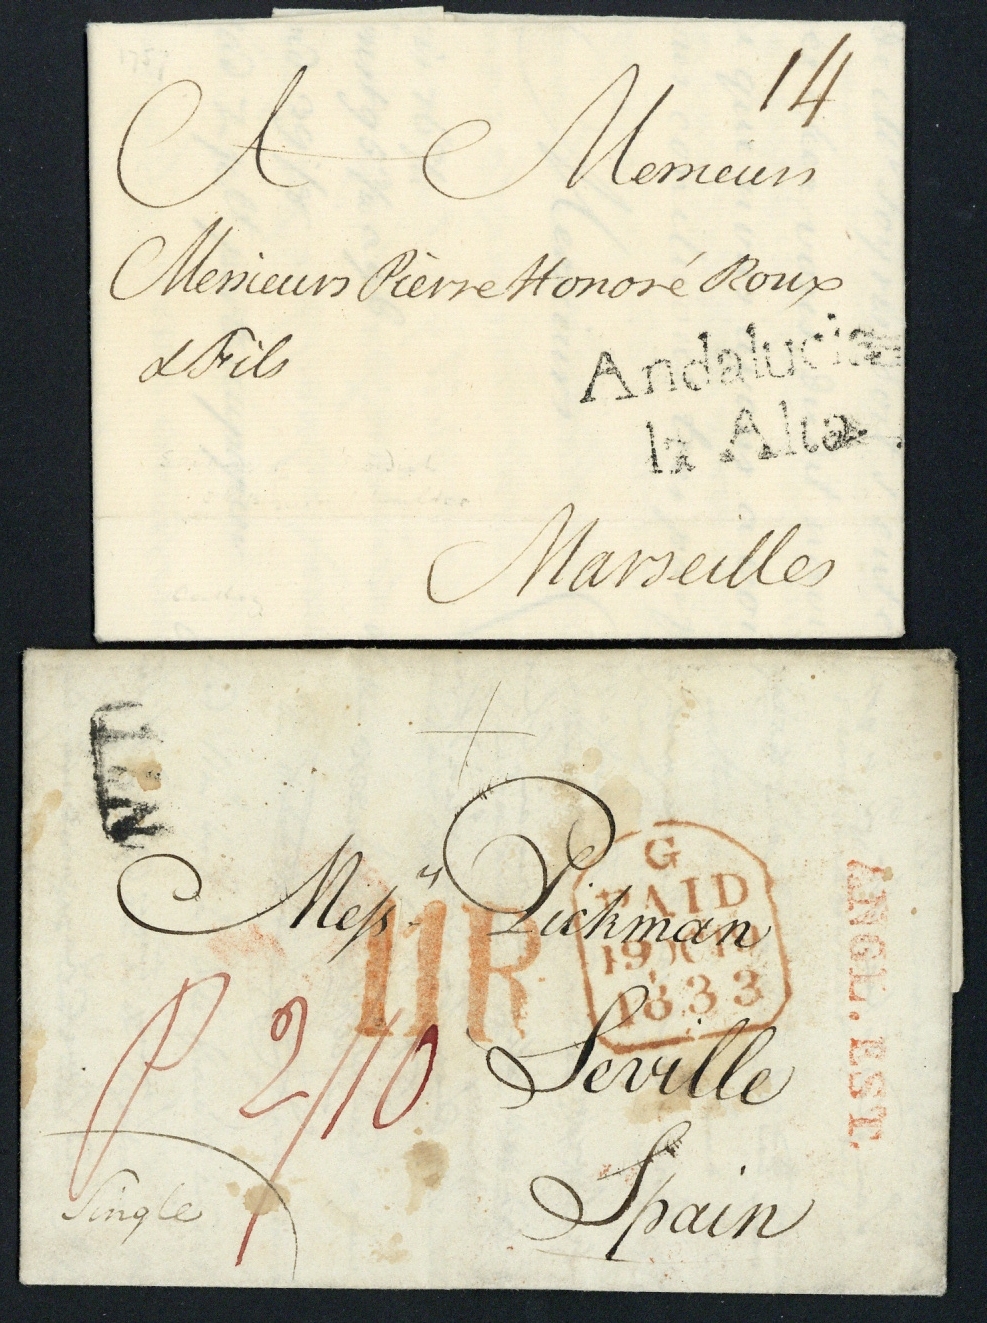 14
A Messieurs
Messieurs Pièrre Honoré Roux
& Fils
Andalucia
la Alta
Marseilles
Mess.rs Pickman
11R
G
PAID
19 OC 19
1833
ANGL. EST.
P 2/10
Seville
Single
Spain